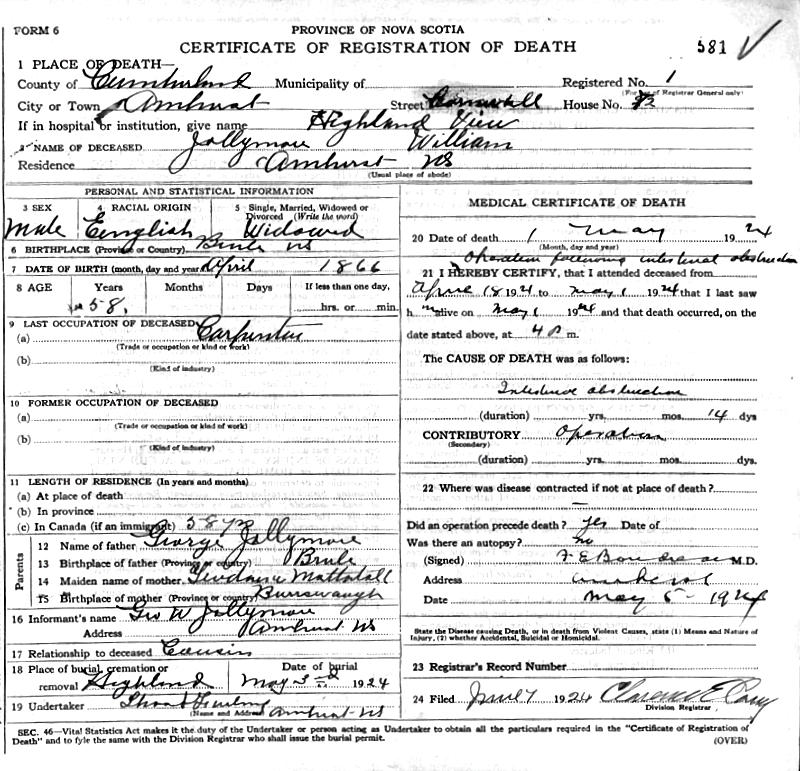 FORM 6
PROVINCE OF NOVA SCOTIA
CERTIFICATE OF REGISTRATION OF DEATH
581
1 PLACE OF DEATH—
County of Cumberland Municipality of Registered No. 1
(For use of Registrar General only)
City or Town Amhurst Street Cornwall House No. 82
If in hospital or institution, give name Highland View
2 NAME OF DECEASED Jollymore William
Residence Amhurst NS
(Usual place of abode)
PERSONAL AND STATISTICAL INFORMATION
3 SEX Male
4 RACIAL ORIGIN English
5 Single, Married, Widowed or Divorced (Write the word) Widowed
6 BIRTHPLACE (Province or Country) Brule NS
7 DATE OF BIRTH (month, day and year) April 1866
8 AGE Years Months Days If less than one day,
58 hrs. or min.
9 LAST OCCUPATION OF DECEASED
(a) Carpenter
(Trade or occupation or kind or work)
(b)
(Kind of industry)
10 FORMER OCCUPATION OF DECEASED
(a)
(Trade or occupation or kind of work)
(b)
(Kind of industry)
11 LENGTH OF RESIDENCE (In years and months)
(a) At place of death
(b) In province
(c) In Canada (if an immigrant) 58 yrs
Parents
12 Name of father George Jollymore
13 Birthplace of father (Province or country) Brule
14 Maiden name of mother Mattatall
15 Birthplace of mother (Province or country)
16 Informant's name Geo W Jollymore
Address Amhurst NS
17 Relationship to deceased Cousin
18 Place of burial, cremation or removal Highland
Date of burial May 3rd 1924
19 Undertaker
(Name and Address) Amhurst NS
MEDICAL CERTIFICATE OF DEATH
20 Date of death 1 May 1924
(Month, day and year)
Operation following intestinal obstruction
21 I HEREBY CERTIFY, that I attended deceased from
April 18 1924 to May 1 1924 that I last saw
h im alive on May 1 1924 and that death occurred, on the
date stated above, at 4 P m.
The CAUSE OF DEATH was as follows:
Intestinal obstruction
(duration) yrs. mos. 14 dys
CONTRIBUTORY Operation
(Secondary)
(duration) yrs. mos. dys.
22 Where was disease contracted if not at place of death?
—
Did an operation precede death? yes Date of
Was there an autopsy? no
(Signed) M.D.
Address Amherst
Date May 5 - 1924
State the Disease causing Death, or in death from Violent Causes, state (1) Means and Nature of Injury, (2) whether Accidental, Suicidal or Homicidal.
23 Registrar's Record Number
24 Filed June 7 1924 Clarence E
Division Registrar
SEC. 46—Vital Statistics Act makes it the duty of the Undertaker or person acting as Undertaker to obtain all the particulars required in the "Certificate of Registration of
Death" and to fyle the same with the Division Registrar who shall issue the burial permit. (OVER)